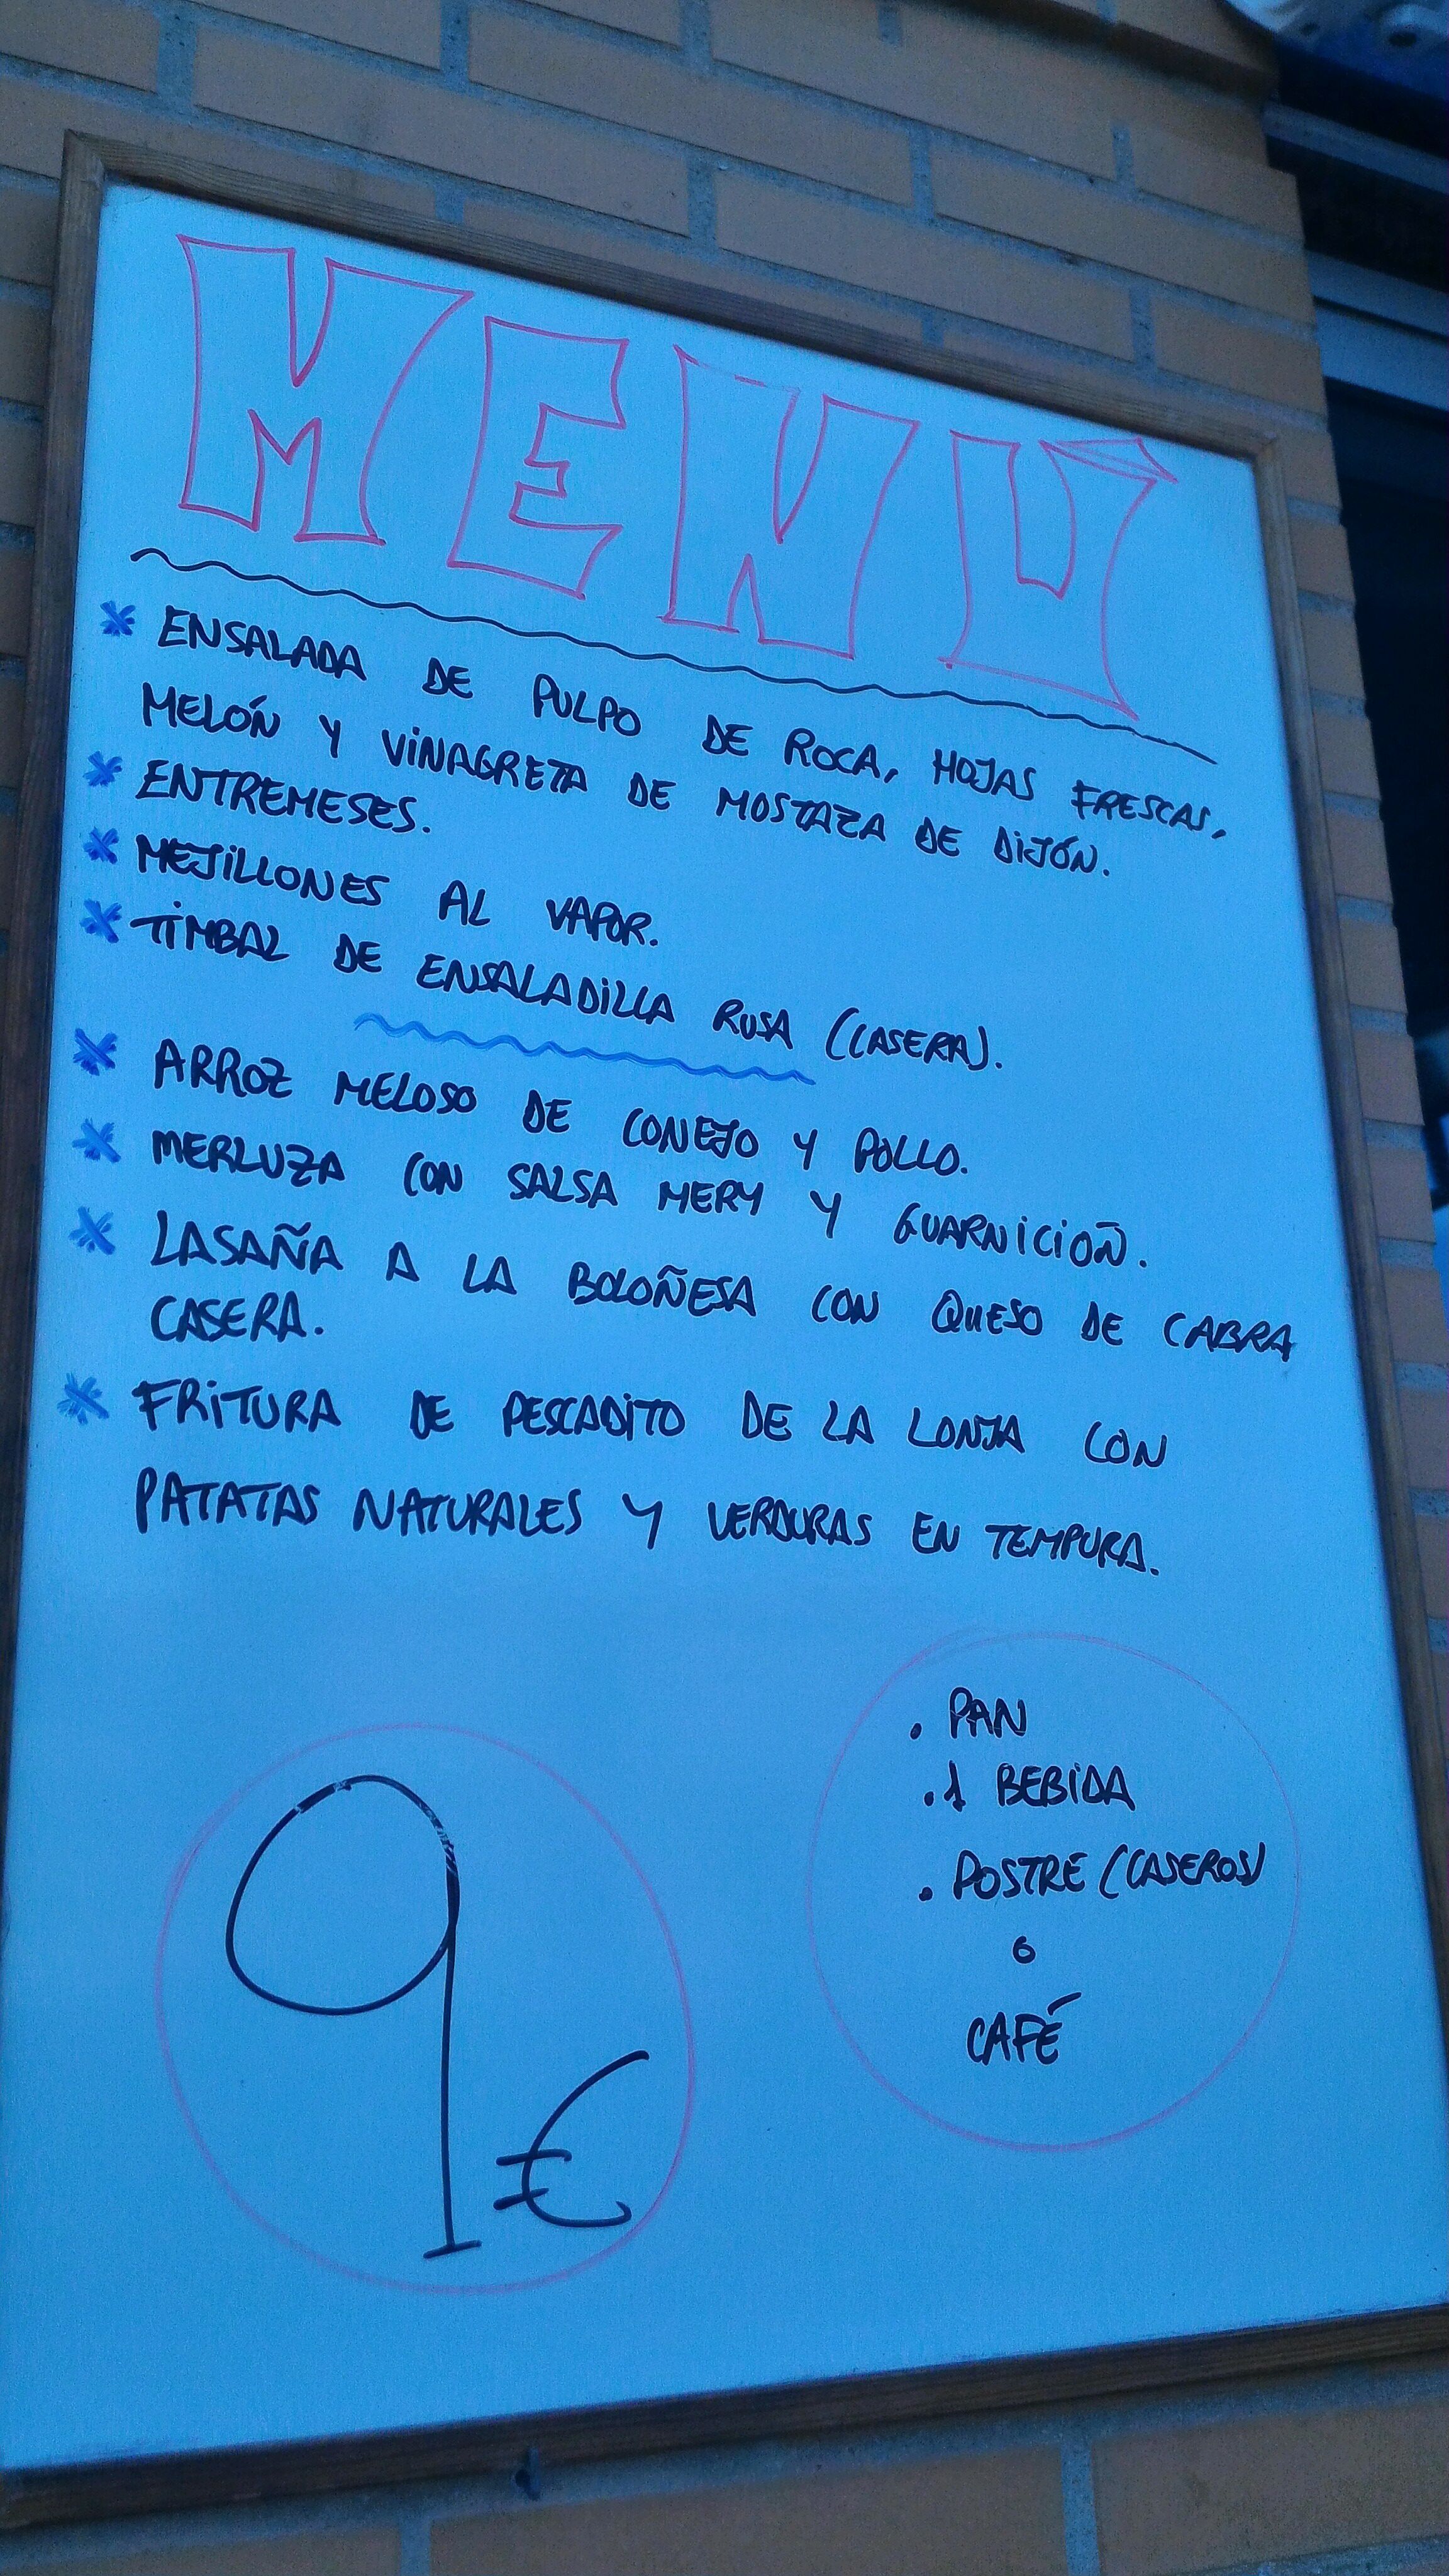 MENÚ
* ENSALADA DE PULPO DE ROCA, HOJAS FRESCAS,
MELÓN Y VINAGRETA DE MOSTAZA DE DIJÓN.
* ENTREMESES.
* MEJILLONES AL VAPOR.
* TIMBAL DE ENSALADILLA RUSA (CASERA).
* ARROZ MELOSO DE CONEJO Y POLLO.
* MERLUZA CON SALSA MERY Y GUARNICIOÑ.
* LASAÑA A LA BOLOÑESA CON QUESO DE CABRA
CASERA.
* FRITURA DE PESCADITO DE LA LONJA CON
PATATAS NATURALES Y VERDURAS EN TEMPURA.
. PAN
. 1 BEBIDA
. POSTRE (CASEROS)
o
CAFÉ
9 €